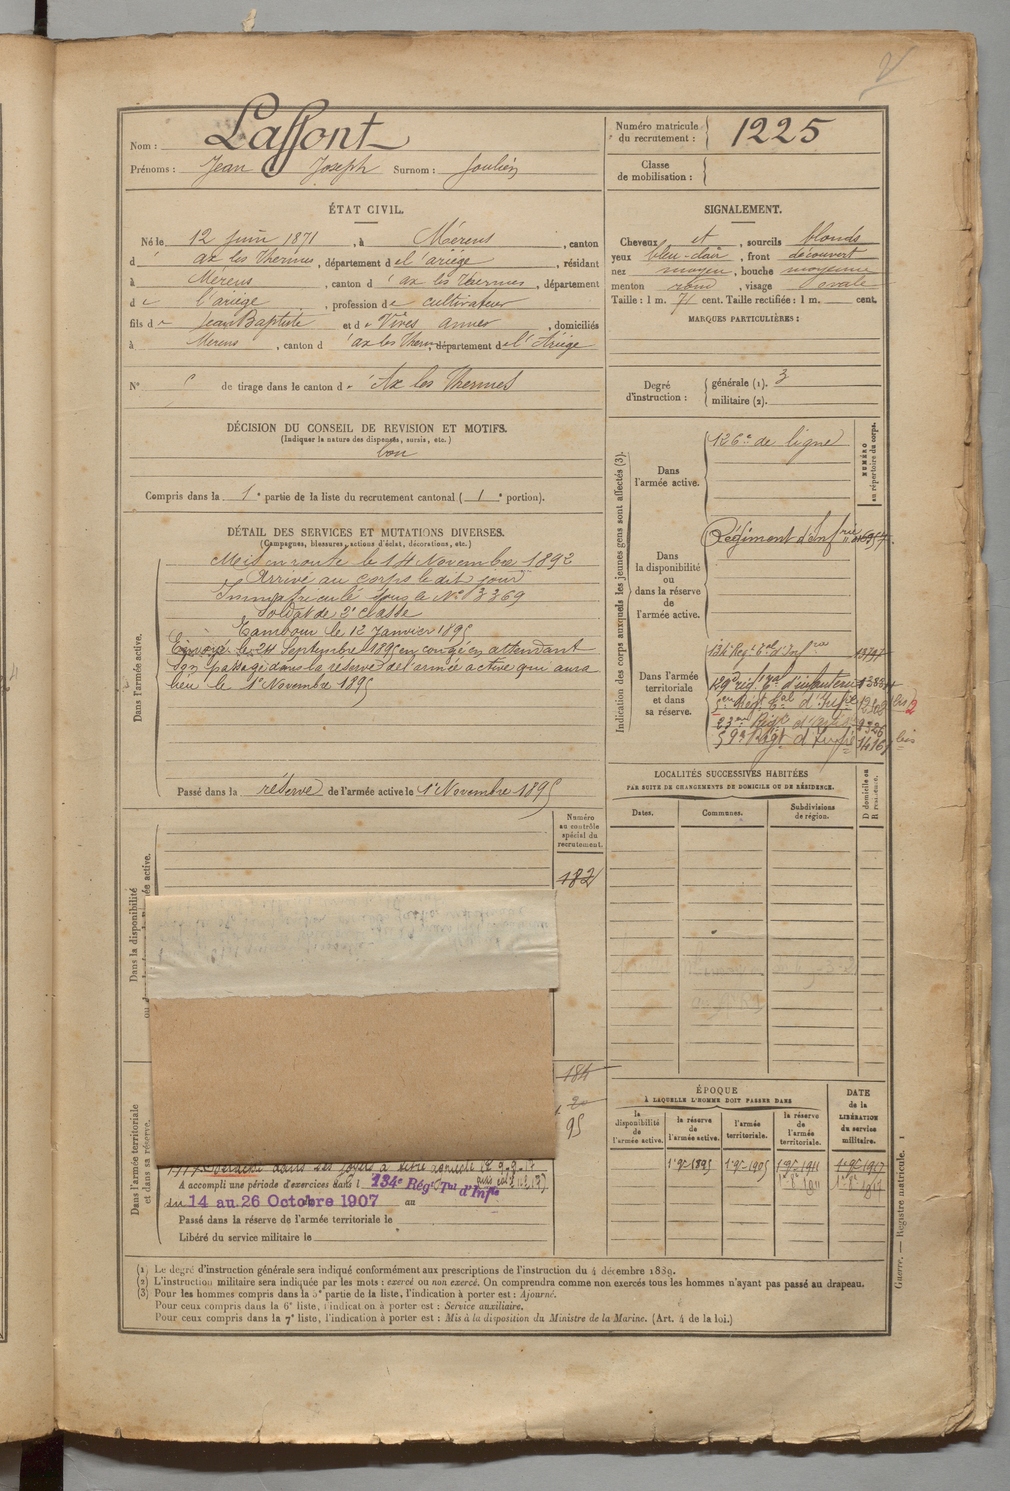 Nom : Laffont
Prénoms : Jean Joseph Surnom :
Numéro matricule
du recrutement : 1225
Classe
de mobilisation :
ÉTAT CIVIL.
Né le 12 juin 1871, à Mérens, canton
d' ax les Thermes, département de l'ariège, résidant
à Mérens, canton d' ax les Thermes, département
de l'ariège, profession de cultivateur
fils de Jean Baptiste et de Vives anne, domiciliés
à Merens, canton d' ax les Therm, département de l'Ariège
N° de tirage dans le canton d' Ax les Thermes
SIGNALEMENT.
Cheveux et, sourcils blonds
yeux bleu-clair, front découvert
nez moyen, bouche moyenne
menton rond, visage ovale
Taille : 1 m. 71 cent. Taille rectifiée : 1 m. cent.
MARQUES PARTICULIÈRES :
Degré
d'instruction :
générale (1). 3
militaire (2).
DÉCISION DU CONSEIL DE REVISION ET MOTIFS.
(Indiquer la nature des dispenses, sursis, etc.)
bon
Compris dans la 1e partie de la liste du recrutement cantonal ( 1e portion).
DÉTAIL DES SERVICES ET MUTATIONS DIVERSES.
(Campagnes, blessures, actions d'éclat, décorations, etc.)
Dans l'armée active.
Mis en route le 14 Novembre 1892
Arrivé au corps le dit jour
Immatriculé sous le N° 3369
Soldat de 2e classe
Tambour le 12 Janvier 1895
Envoyé le 24 Septembre 1895 en congé en attendant
son passage dans la réserve de l'armée active qui aura
lieu le 1e Novembre 1895
Passé dans la réserve de l'armée active le 1e Novembre 1895
Indication des corps auxquels les jeunes gens sont affectés (3).
NUMÉRO
au répertoire du corps.
Dans
l'armée active.
126e de ligne
Dans
la disponibilité
ou
dans la réserve
de
l'armée active.
Régiment d'Infrie
Dans l'armée
territoriale
et dans
sa réserve.
134 Reg. tal d'Infrie
129e rég. tal d'infanterie
59e Régt d'Infie
LOCALITÉS SUCCESSIVES HABITÉES
PAR SUITE DE CHANGEMENTS DE DOMICILE OU DE RÉSIDENCE.
Dates.
Communes.
Subdivisions
de région.
D domicile ou
R résidence.
Numéro
au contrôle
spécial du
recrutement.
182
Dans la disponibilité
184
95
Dans l'armée territoriale
et dans sa réserve.
A accompli une période d'exercices dans l 134e Régt Tal d'Infie
du 14 au 26 Octobre 1907 au
Passé dans la réserve de l'armée territoriale le
Libéré du service militaire le
ÉPOQUE
À LAQUELLE L'HOMME DOIT PASSER DANS
la
disponibilité
de
l'armée active.
la réserve
de
l'armée active.
l'armée
territoriale.
la réserve
de
l'armée
territoriale.
DATE
de la
LIBÉRATION
du service
militaire.
1e 9e 1895
1e 9e 1905
1e 9e 1911
1e 9e 1917
(1) Le degré d'instruction générale sera indiqué conformément aux prescriptions de l'instruction du 4 décembre 1889.
(2) L'instruction militaire sera indiquée par les mots : exercé ou non exercé. On comprendra comme non exercés tous les hommes n'ayant pas passé au drapeau.
(3) Pour les hommes compris dans la 5e partie de la liste, l'indication à porter est : Ajourné.
Pour ceux compris dans la 6e liste, l'indication à porter est : Service auxiliaire.
Pour ceux compris dans la 7e liste, l'indication à porter est : Mis à la disposition du Ministre de la Marine. (Art. 4 de la loi.)
Guerre. — Registre matricule. 1